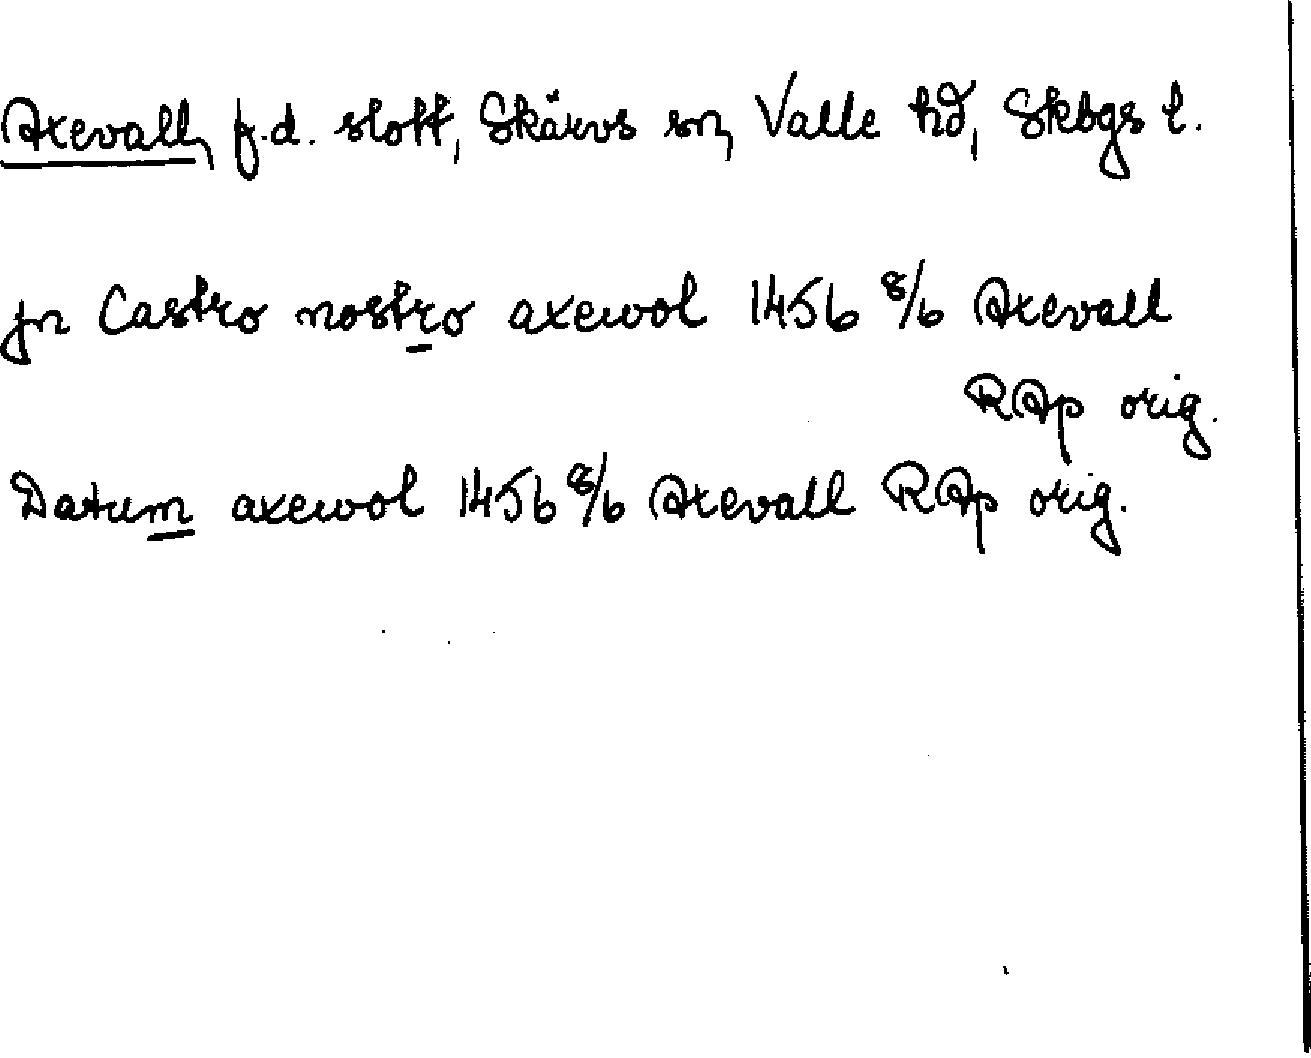 Axevall, f.d. slott, Skärvs sn, Valle hd, Skbgs l.
jn Castro nostro axewol 1456 8/6 Axevall
RAp orig.
Datum axewol 1456 8/6 Axevall RAp orig.